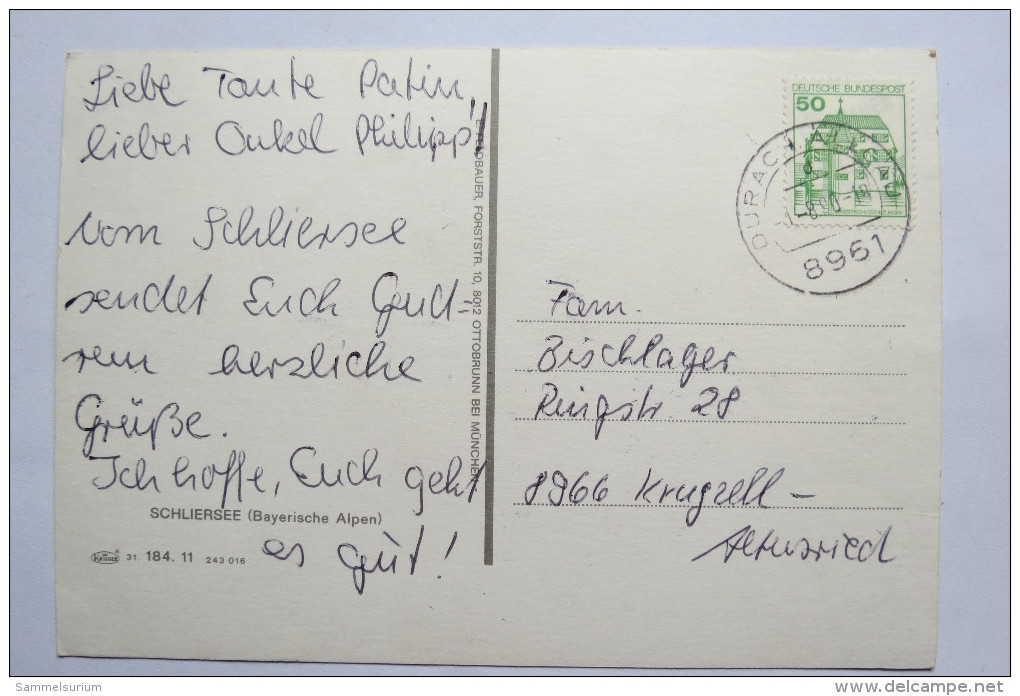 Liebe Tante Patin,
lieber Onkel Philipp!
Vom Schliersee
sendet Euch Gud-
run herzliche
Grüße.
Ich hoffe, Euch geht
es gut!
SCHLIERSEE (Bayerische Alpen)
KRÜGER 31. 184. 11 243 016
BAUER, FORSTSTR. 10, 8012 OTTOBRUNN BEI MÜNCHEN
DEUTSCHE BUNDESPOST
50
DURACH ALLGÄU
8961
Fam.
Bischlager
Ringstr. 28
8966 Krugzell -
Altusried
Sammelsurium
www.delcampe.net